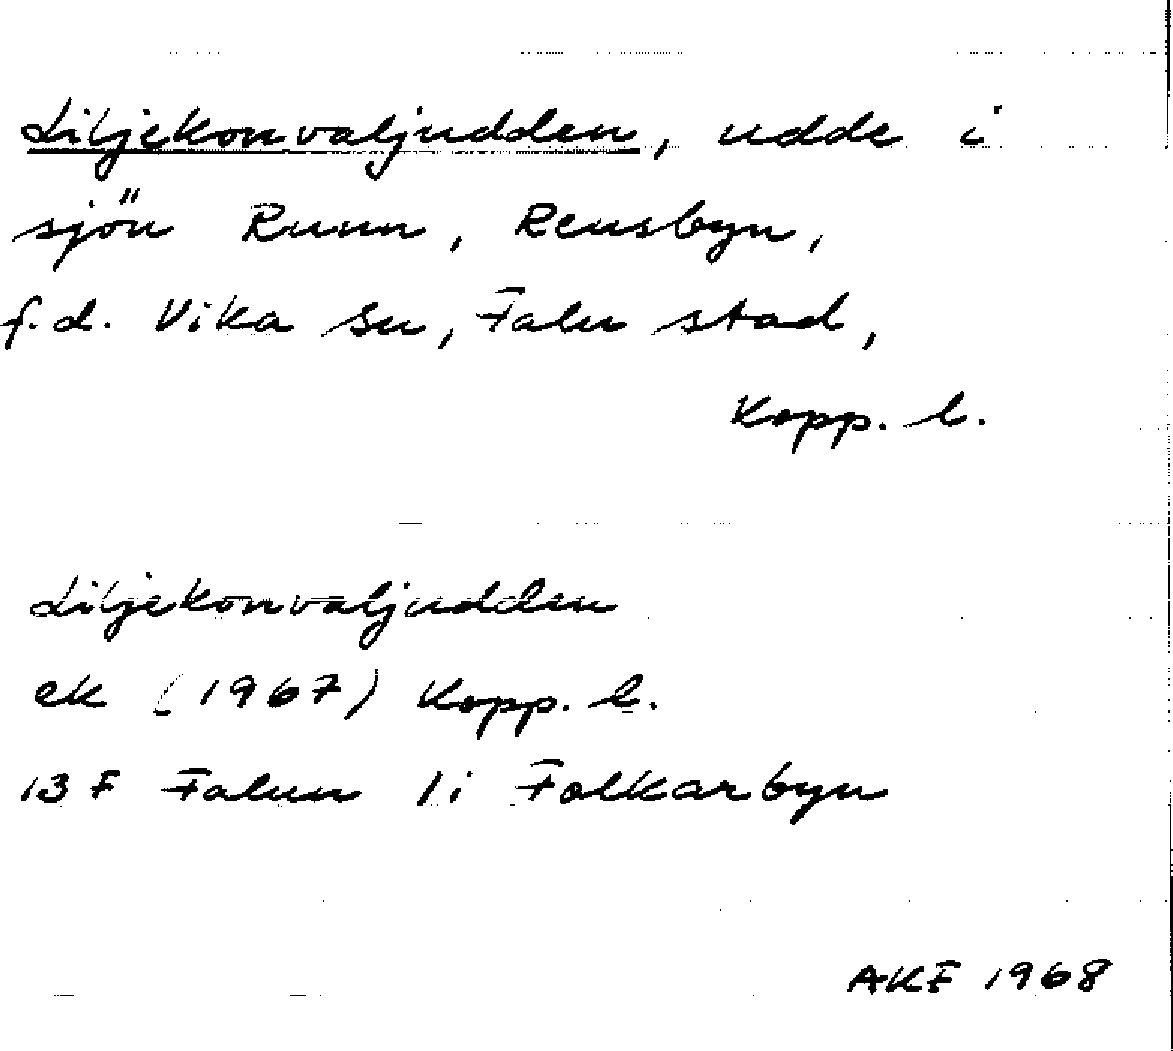 Liljekonvaljudden, udde i
sjön Runn, Rensbyn,
f.d. Vika sn, Falu stad,
Kopp. l.
Liljekonvaljudden
ek (1967) Kopp. l.
13 F Falun 1i Folkarbyn
AKF 1968